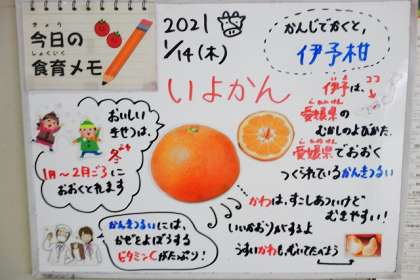 きょう
今日の
しょくいく
食育メモ
2021
1/14(木)
かんじでかくと、
伊予柑
いよかん
いよ
伊予は、
ココ
愛媛県の
むかしのよびかた。
愛媛県でおおく
つくられているかんきつるい
おいしい
きせつは、
ふゆ
冬
1月〜2月ごろに
おおくとれます
かわは、すこしあついけど
むきやすい!
いいかおりがするよ
うすいかわも、むいてたべよう
かんきつるいには、
かぜをよぼうする
ビタミンCがたっぷり!